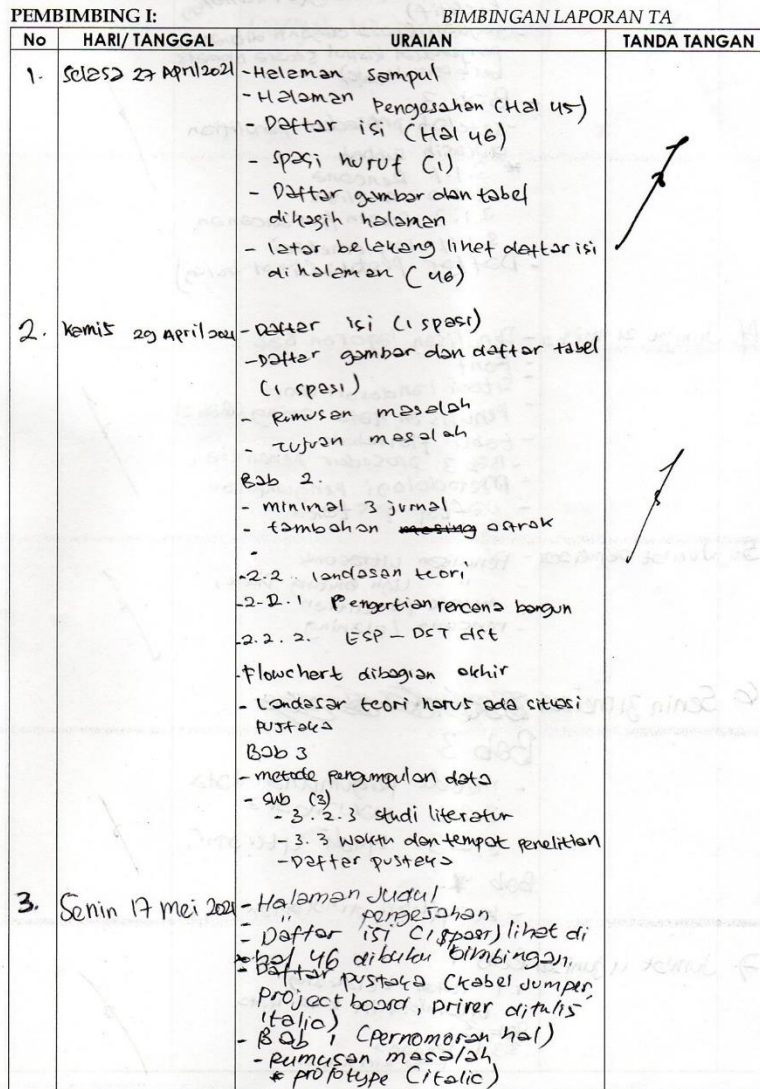 PEMBIMBING I: BIMBINGAN LAPORAN TA
No HARI/ TANGGAL URAIAN TANDA TANGAN
1. Selasa 27 April 2021 - Halaman Sampul
- Halaman Pengesahan (Hal 45)
- Daftar isi (Hal 46)
- spasi huruf (1)
- Daftar gambar dan tabel
dikasih halaman
- latar belakang lihat daftar isi
di halaman (46)
2. Kamis 29 April 2021 - Daftar isi (1 spasi)
- Daftar gambar dan daftar tabel
(1 spasi)
- Rumusan masalah
- Tujuan masalah
Bab 2.
- minimal 3 jurnal
- tambahan masing astrak
-
- 2.2 landasan teori
- 2.2.1 Pengertian rencana bangun
- 2.2.2. ESP - DST dst
- Flowchart dibagian akhir
- Landasar teori harus ada sitasi
pustaka
Bab 3
- metode pengumpulan data
- sub (3)
- 3.2.3 studi literatur
- 3.3 waktu dan tempat penelitian
- Daftar pustaka
3. Senin 17 mei 2021 - Halaman Judul
- " pengesahan
- Daftar isi (1 spasi) lihat di
hal 46 dibuku bimbingan.
- Daftar pustaka (kabel Jumper,
project board, Driver ditulis
italic)
- Bab 1 (Pernomoran hal)
- Rumusan masalah
* prototype (italic)